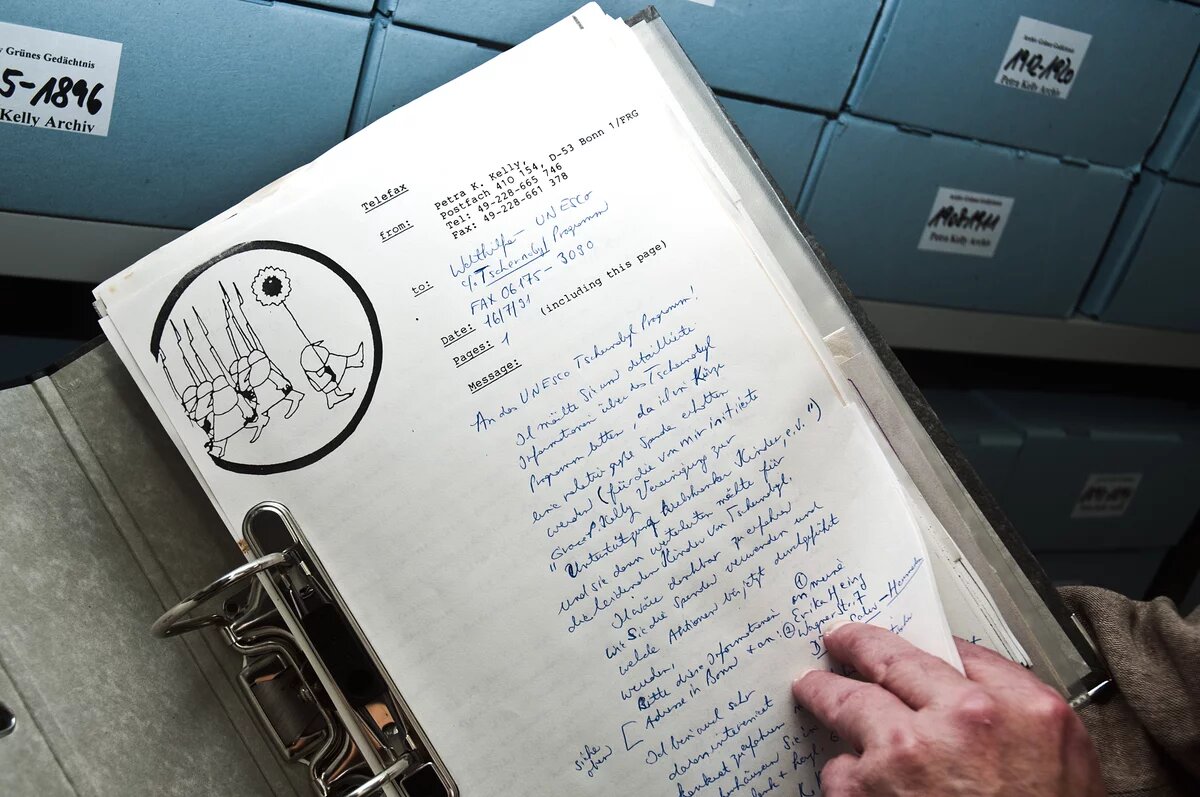 Grünes Gedächtnis
5-1896
Kelly Archiv
Archiv Grünes Gedächtnis
1912-1920
Petra Kelly Archiv
Archiv Grünes Gedächtnis
1908-1911
Petra Kelly Archiv
Telefax
from: Petra K. Kelly,
Postfach 410 154, D-53 Bonn 1/FRG
Tel: 49-228-665 746
Fax: 49-228-661 378
to: Welthilfe - UNESCO
c/o Tschernobyl Programm
FAX 06175-3090
Date: 16/7/91
Pages: 1 (including this page)
Message:
An das UNESCO Tschernobyl Programm!
Ich möchte Sie um detaillierte
Informationen über das Tschernobyl
Programm bitten, da ich in Kürze
eine relativ große Spende erhalten
werde (für die von mir initiierte
"Grace P. Kelly Vereinigung zur
Unterstützung krebskranker Kinder, e.V.")
und sie dann weiterleiten möchte für
die leidenden Kinder von Tschernobyl.
Ich wäre dankbar zu erfahren
wie Sie die Spenden verwenden und
welche Aktionen bis jetzt durchgeführt
werden.
Bitte diese Informationen an ① meine
Adresse in Bonn + an: ② Erika Heinz
Wagnerstr. 7
siehe oben
Ich bin auch sehr
daran interessiert
konkret zu erfahren
Sie in